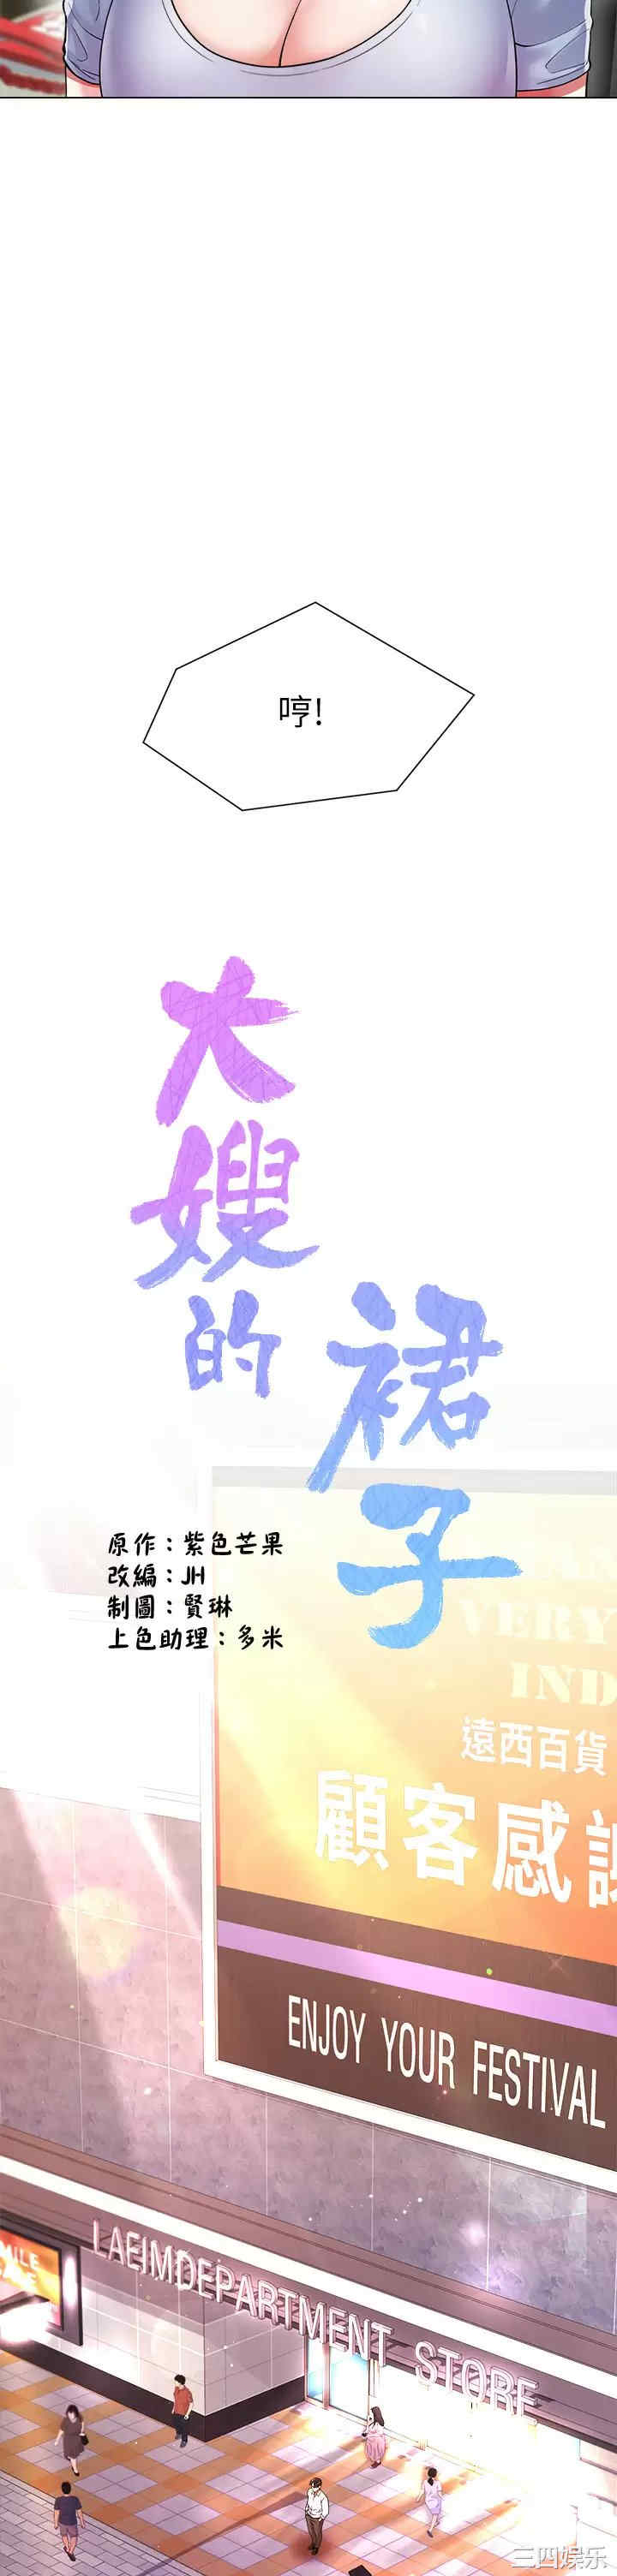 哼!
大嫂的
裙子
原作：紫色芒果
改編：JH
制圖：賢琳
上色助理：多米
VERY
IND
遠西百貨
顧客感謝
ENJOY YOUR FESTIVAL
LAEIMDEPARTMENT STORE
三四娱乐